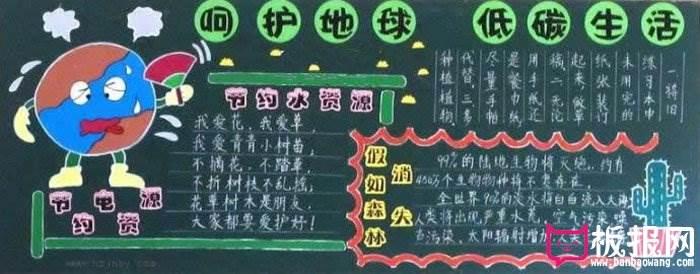 呵护地球 低碳生活
节约水资源
我爱花,我爱草,
我爱青青小树苗,
不摘花,不踏草,
不折树枝不乱摇,
花草树木是朋友,
大家都要爱护好!
节电源
约资
一、将旧
练习本中
未用完的
纸张装订
起来,做草
稿;二、无论
用手纸还
是餐巾纸
尽量手帕
代替;三、多
种植植物
假如森林
消失
99%的陆地生物将灭绝,约有
450万个生物物种将不复存在,
全世界90%的淡水将白白流入大海
人类将出现严重水荒,空气污染,噪
音污染,太阳辐射增加,人类
板报网
www.banbaowang.com